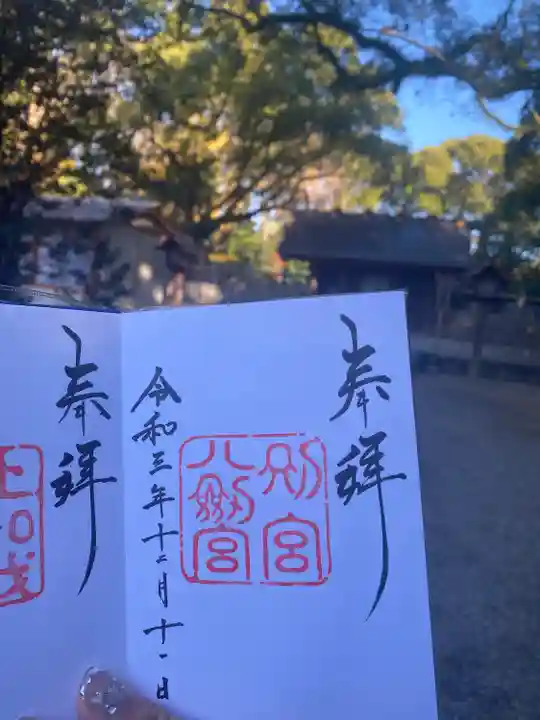 奉拝
別宮
八剱宮
令和三年十二月十一日
奉拝